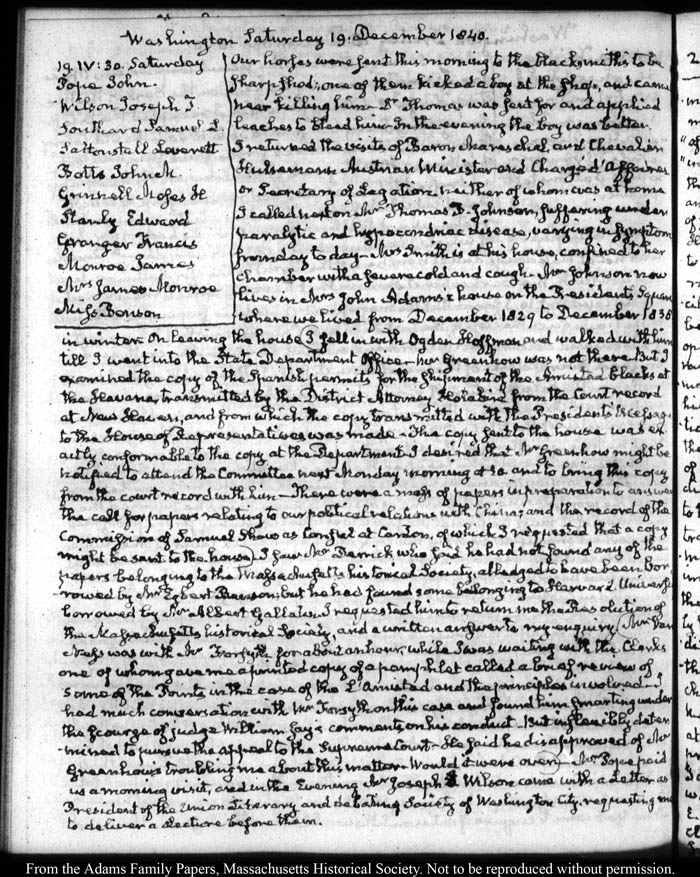 Washington Saturday 19. December 1840.
19. IV: 30. Saturday
Pope John.
Wilson Joseph T.
Southard Samuel L.
Saltonstall Leverett
Botts John M.
Grinnell Moses H
Stanly Edward
Granger Francis
Monroe James
Mrs James Monroe
Miss Benson
Our horses were sent this morning to the blacksmiths to be
sharp shod; one of them kicked a boy at the shop, and came
near killing him. Dr Thomas was sent for and applied
leaches to bleed him. In the evening the boy was better.
I returned the visits of Baron Mareschal, and Chevalier
Hulsemann Austrian Minister and Chargé d'Affaires
or Secretary of Legation neither of whom was at home
I called next on Mr Thomas B. Johnson, suffering under
paralytic and hypocondriac disease, varying in symptom
from day to day— Mrs Smith is at his house, confined to her
Chamber with a severe cold and cough. Mr Johnson now
lives in Mrs John Adams's house on the President's Square
where we lived from December 1829 to December 1838
in winter. On leaving the house I fell in with Ogden Hoffman and walked with him
till I went into the State Department Office— Mr Greenhow was not there. But I
examined the copy of the Spanish permits for the shipment of the Amistad blacks at
the Havana, transmitted by the District Attorney Holabird from the Court record
at New Haven, and from which the copy transmitted with the President's Message
to the House of Representatives was made— The copy sent to the house was ex
actly conformable to the copy at the Department. I desired that Mr Greenhow might be
notified to attend the Committee next Monday morning at 10. and to bring this copy
from the court record with him— There were a mass of papers in preparation to answer
the call for papers relating to our political relations with China; and the record of the
Commission of Samuel Shaw as Consul at Canton, of which I requested that a copy
might be sent to the house) I saw Mr Derrick who said he had not found any of the
papers belonging to the Massachusetts historical Society, alledged to have been bor
rowed by Mr Egbert Benson; but he had found some belonging to Harvard Universit
borrowed by Mr Albert Gallatin. I requested him to return me the Resolution of
the Massachusetts historical Society, and a written answer to my enquiry (Mr Van
Ness was with Mr Forsyth for about an hour, while I was waiting with the Clerks
one of whom gave me a printed copy of a pamphlet called a brief review of
some of the Points in the case of the L'Amistad and the principles involved— I
had much conversation with Mr Forsyth on this case and found him smarting under
the scourge of judge William Jay's comments on his conduct— But inflexibly deter
mined to pursue the appeal to the Supreme Court— He said he disapproved of Mr
Greenhow's troubling me about this matter. Would it were over)— Mr Pope paid
us a morning visit, and in the Evening Mr Joseph Wilson came with a Letter as
President of the Union Literary and debating Society of Washington City, requesting me
to deliver a Lecture before them.
From the Adams Family Papers, Massachusetts Historical Society. Not to be reproduced without permission.